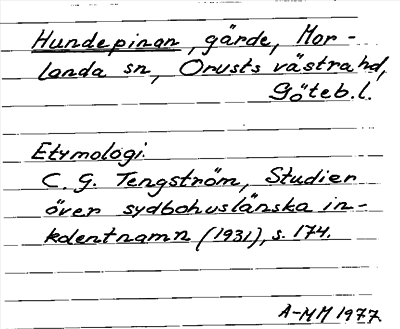 Hundepinan, gärde, Mor-
landa sn, Orusts västra hd,
Göteb.l.
Etymologi.
C. G. Tengström, Studier
över sydbohuslänska in-
kolentnamn (1931), s. 174.
A-MM 1977